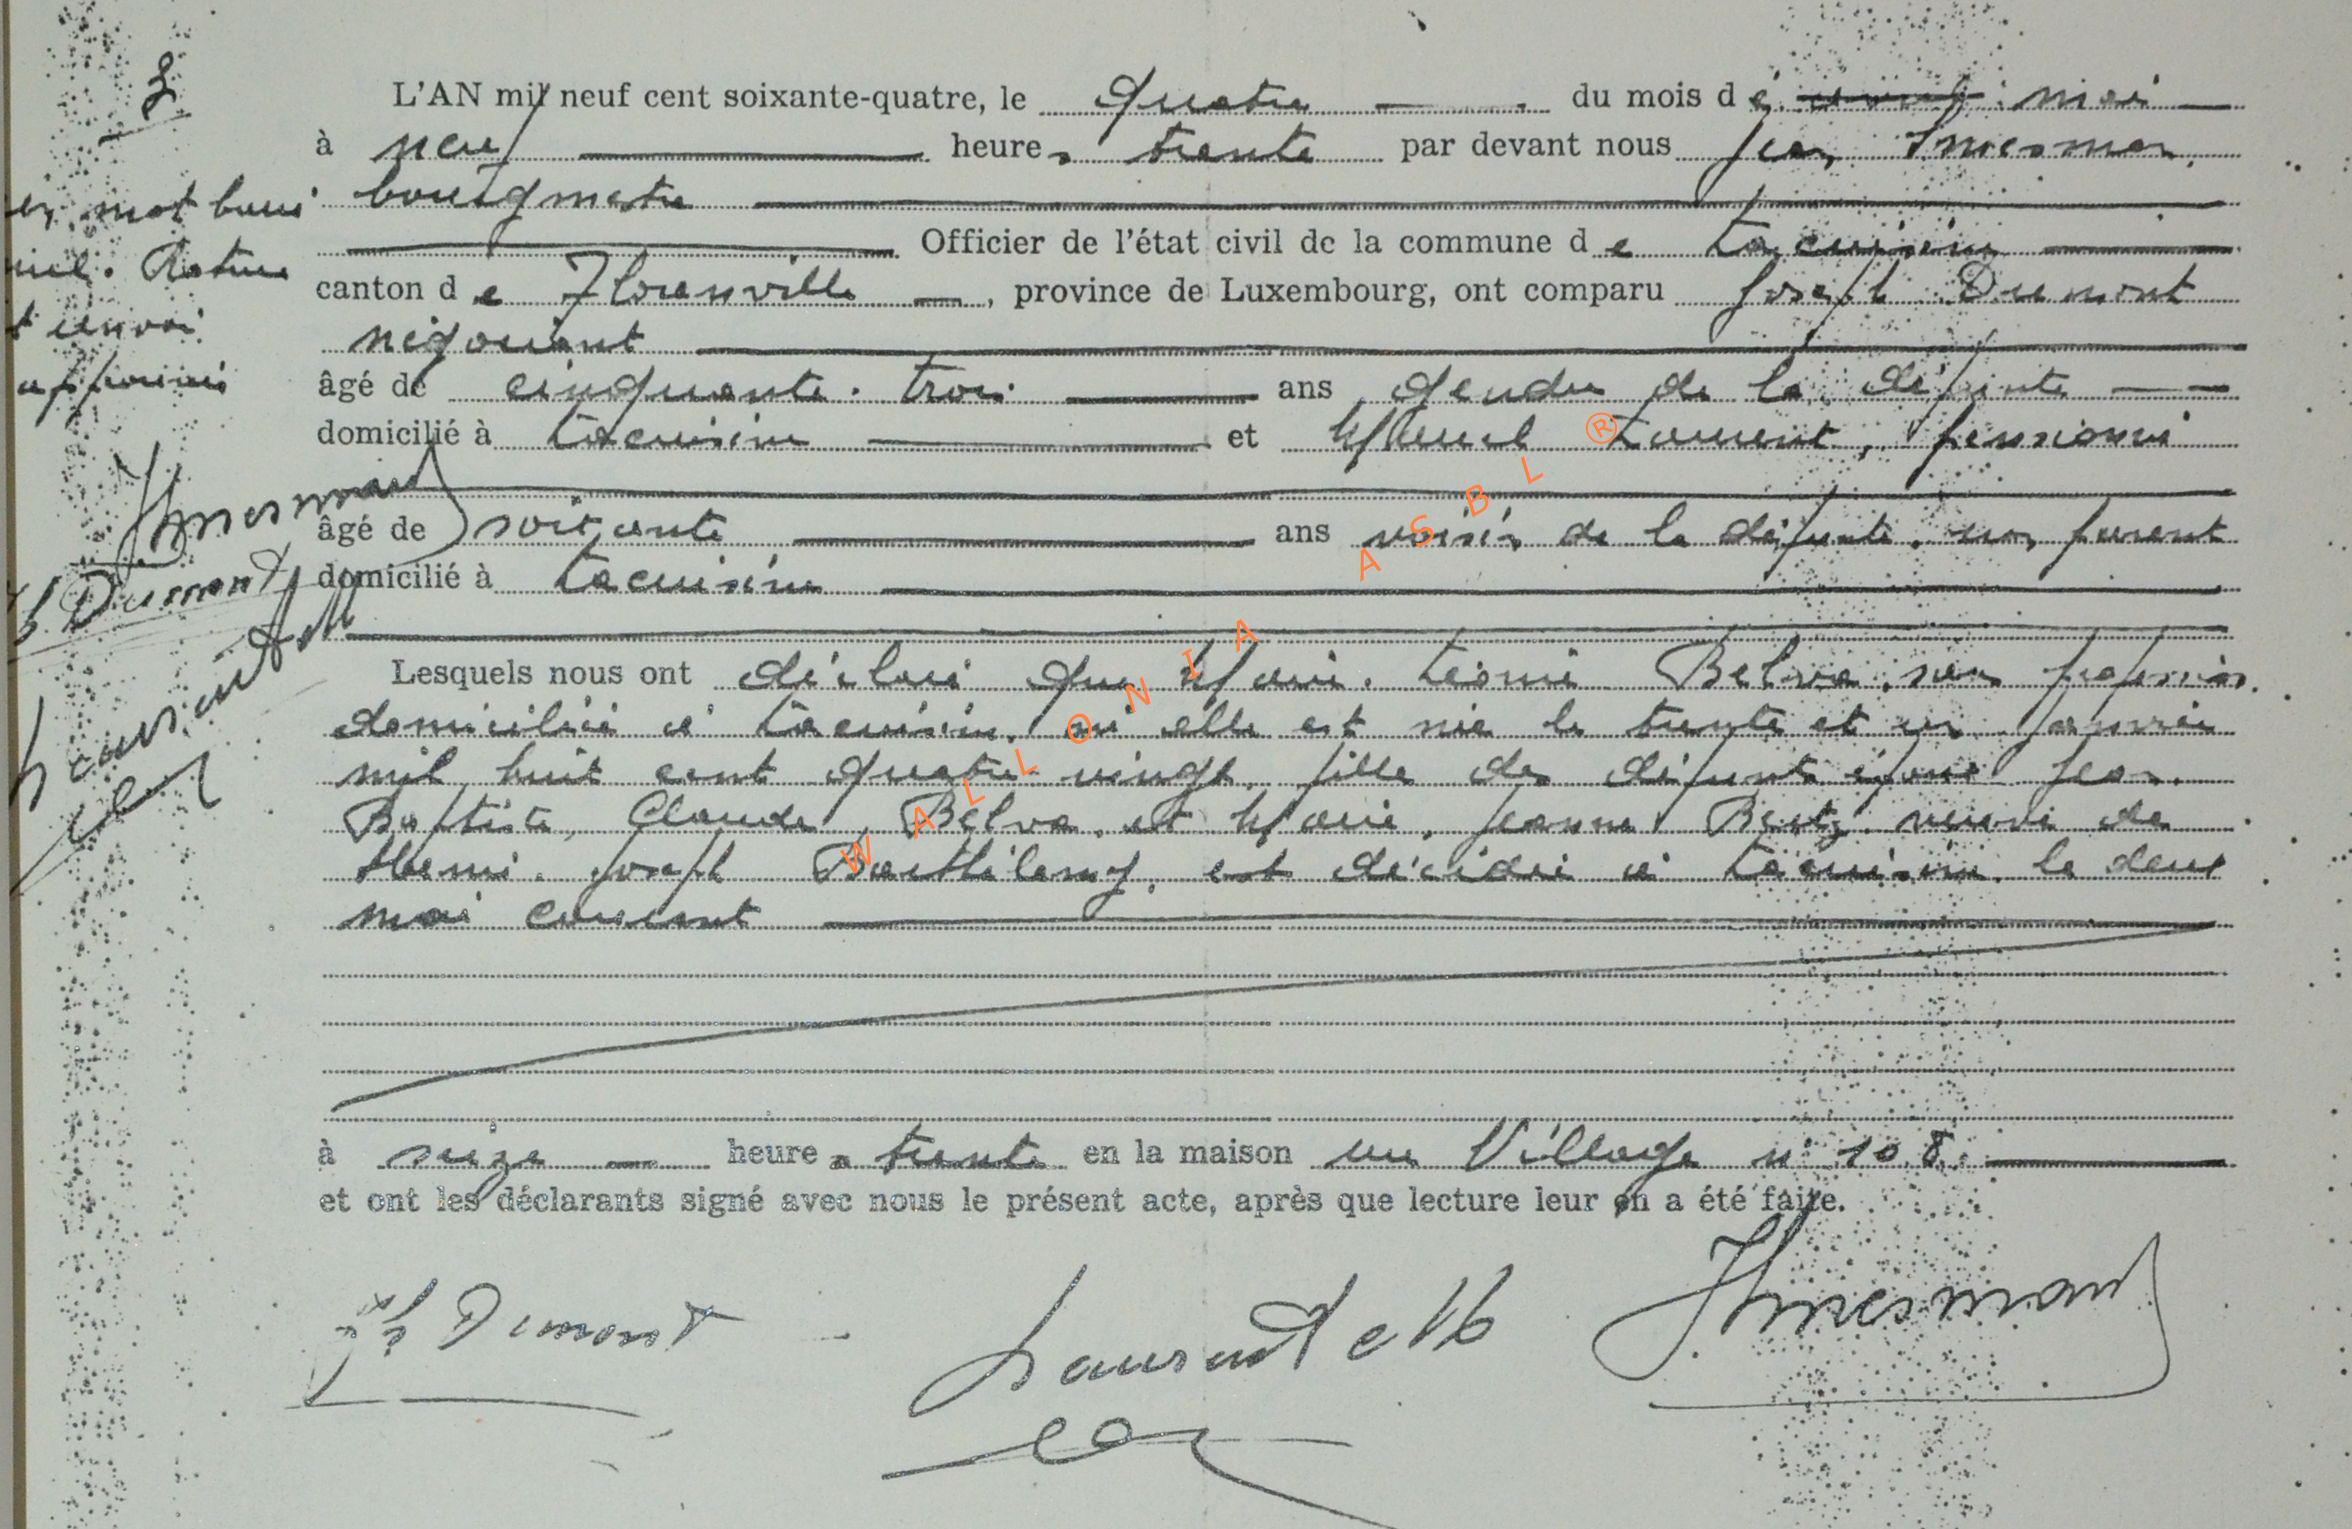 3
L'AN mil neuf cent soixante-quatre, le quatre du mois de mai
à neuf heures trente par devant nous Jean
bourgmestre
Officier de l'état civil de la commune de Lacuisine
canton de Florenville, province de Luxembourg, ont comparu Joseph Dumont
négociant
âgé de cinquante-trois ans gendre de la défunte
domicilié à Lacuisine et Marcel Laurent, pensionné
âgé de soixante ans voisin de la défunte, non parent
domicilié à Lacuisine
Lesquels nous ont déclaré que Marie, Léonie Belva, sans profession
domiciliée à Lacuisine, où elle est née le trente et un janvier
mil huit cent quatre-vingt, fille des défunts époux Jean
Baptiste, Claude Belva, et Marie, Jeanne veuve de
Henri, Joseph Barthélemy, est décédée à Lacuisine, le deux
mai courant
à seize heures trente en la maison rue Village n° 108
et ont les déclarants signé avec nous le présent acte, après que lecture leur en a été faite.
mot
Rature
et renvoi
approuvés
Dumont
Laurent
Jh Dumont
Laurent
WALLONIA ASBL ®